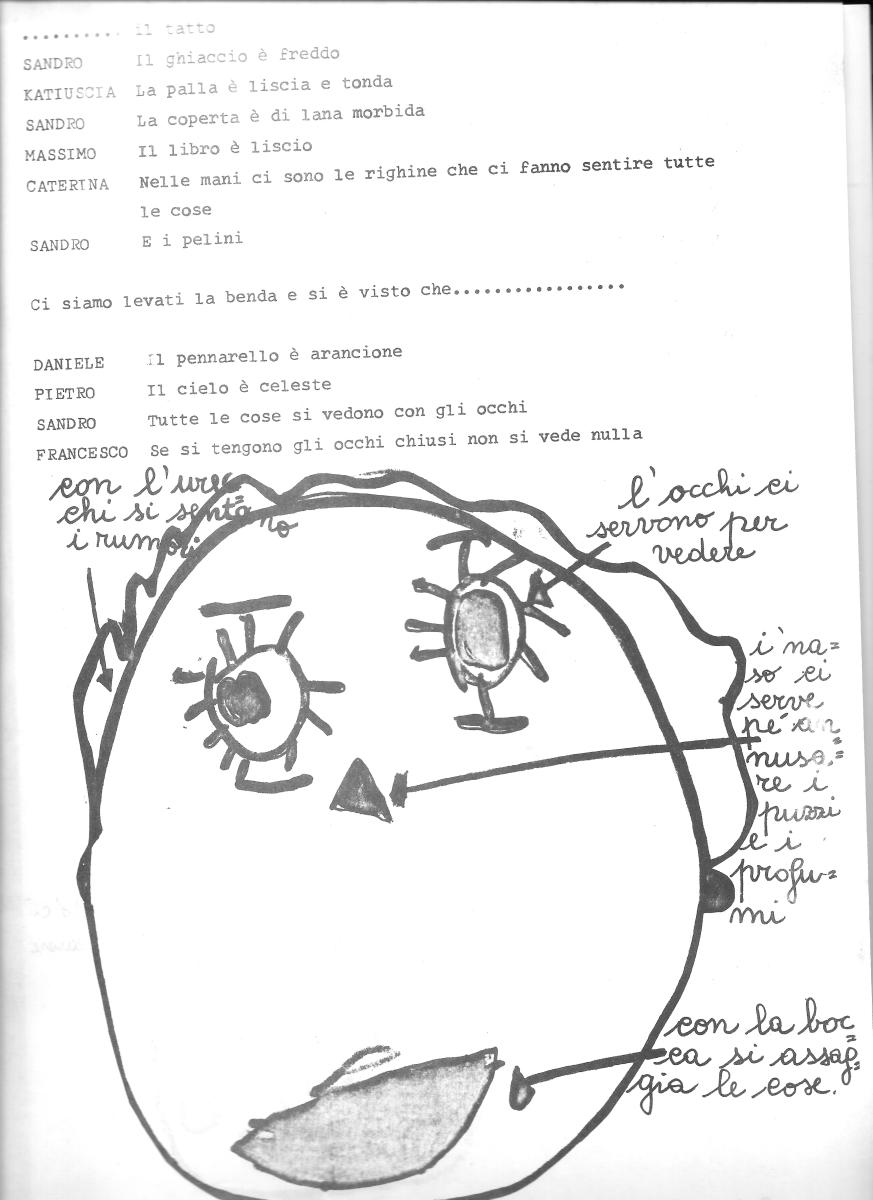 .......... il tatto
SANDRO Il ghiaccio è freddo
KATIUSCIA La palla è liscia e tonda
SANDRO La coperta è di lana morbida
MASSIMO Il libro è liscio
CATERINA Nelle mani ci sono le righine che ci fanno sentire tutte
le cose
SANDRO E i pelini
Ci siamo levati la benda e si è visto che.................
DANIELE Il pennarello è arancione
PIETRO Il cielo è celeste
SANDRO Tutte le cose si vedono con gli occhi
FRANCESCO Se si tengono gli occhi chiusi non si vede nulla
con l'urec
chi si senta=
no
i rumori
l'occhi ci
servono per
vedere
i' na=
so ci
serve
pe' an
nusa=
re i
puzzi
e i
profu=
mi
con la boc
=
ca si assag=
gia le cose.